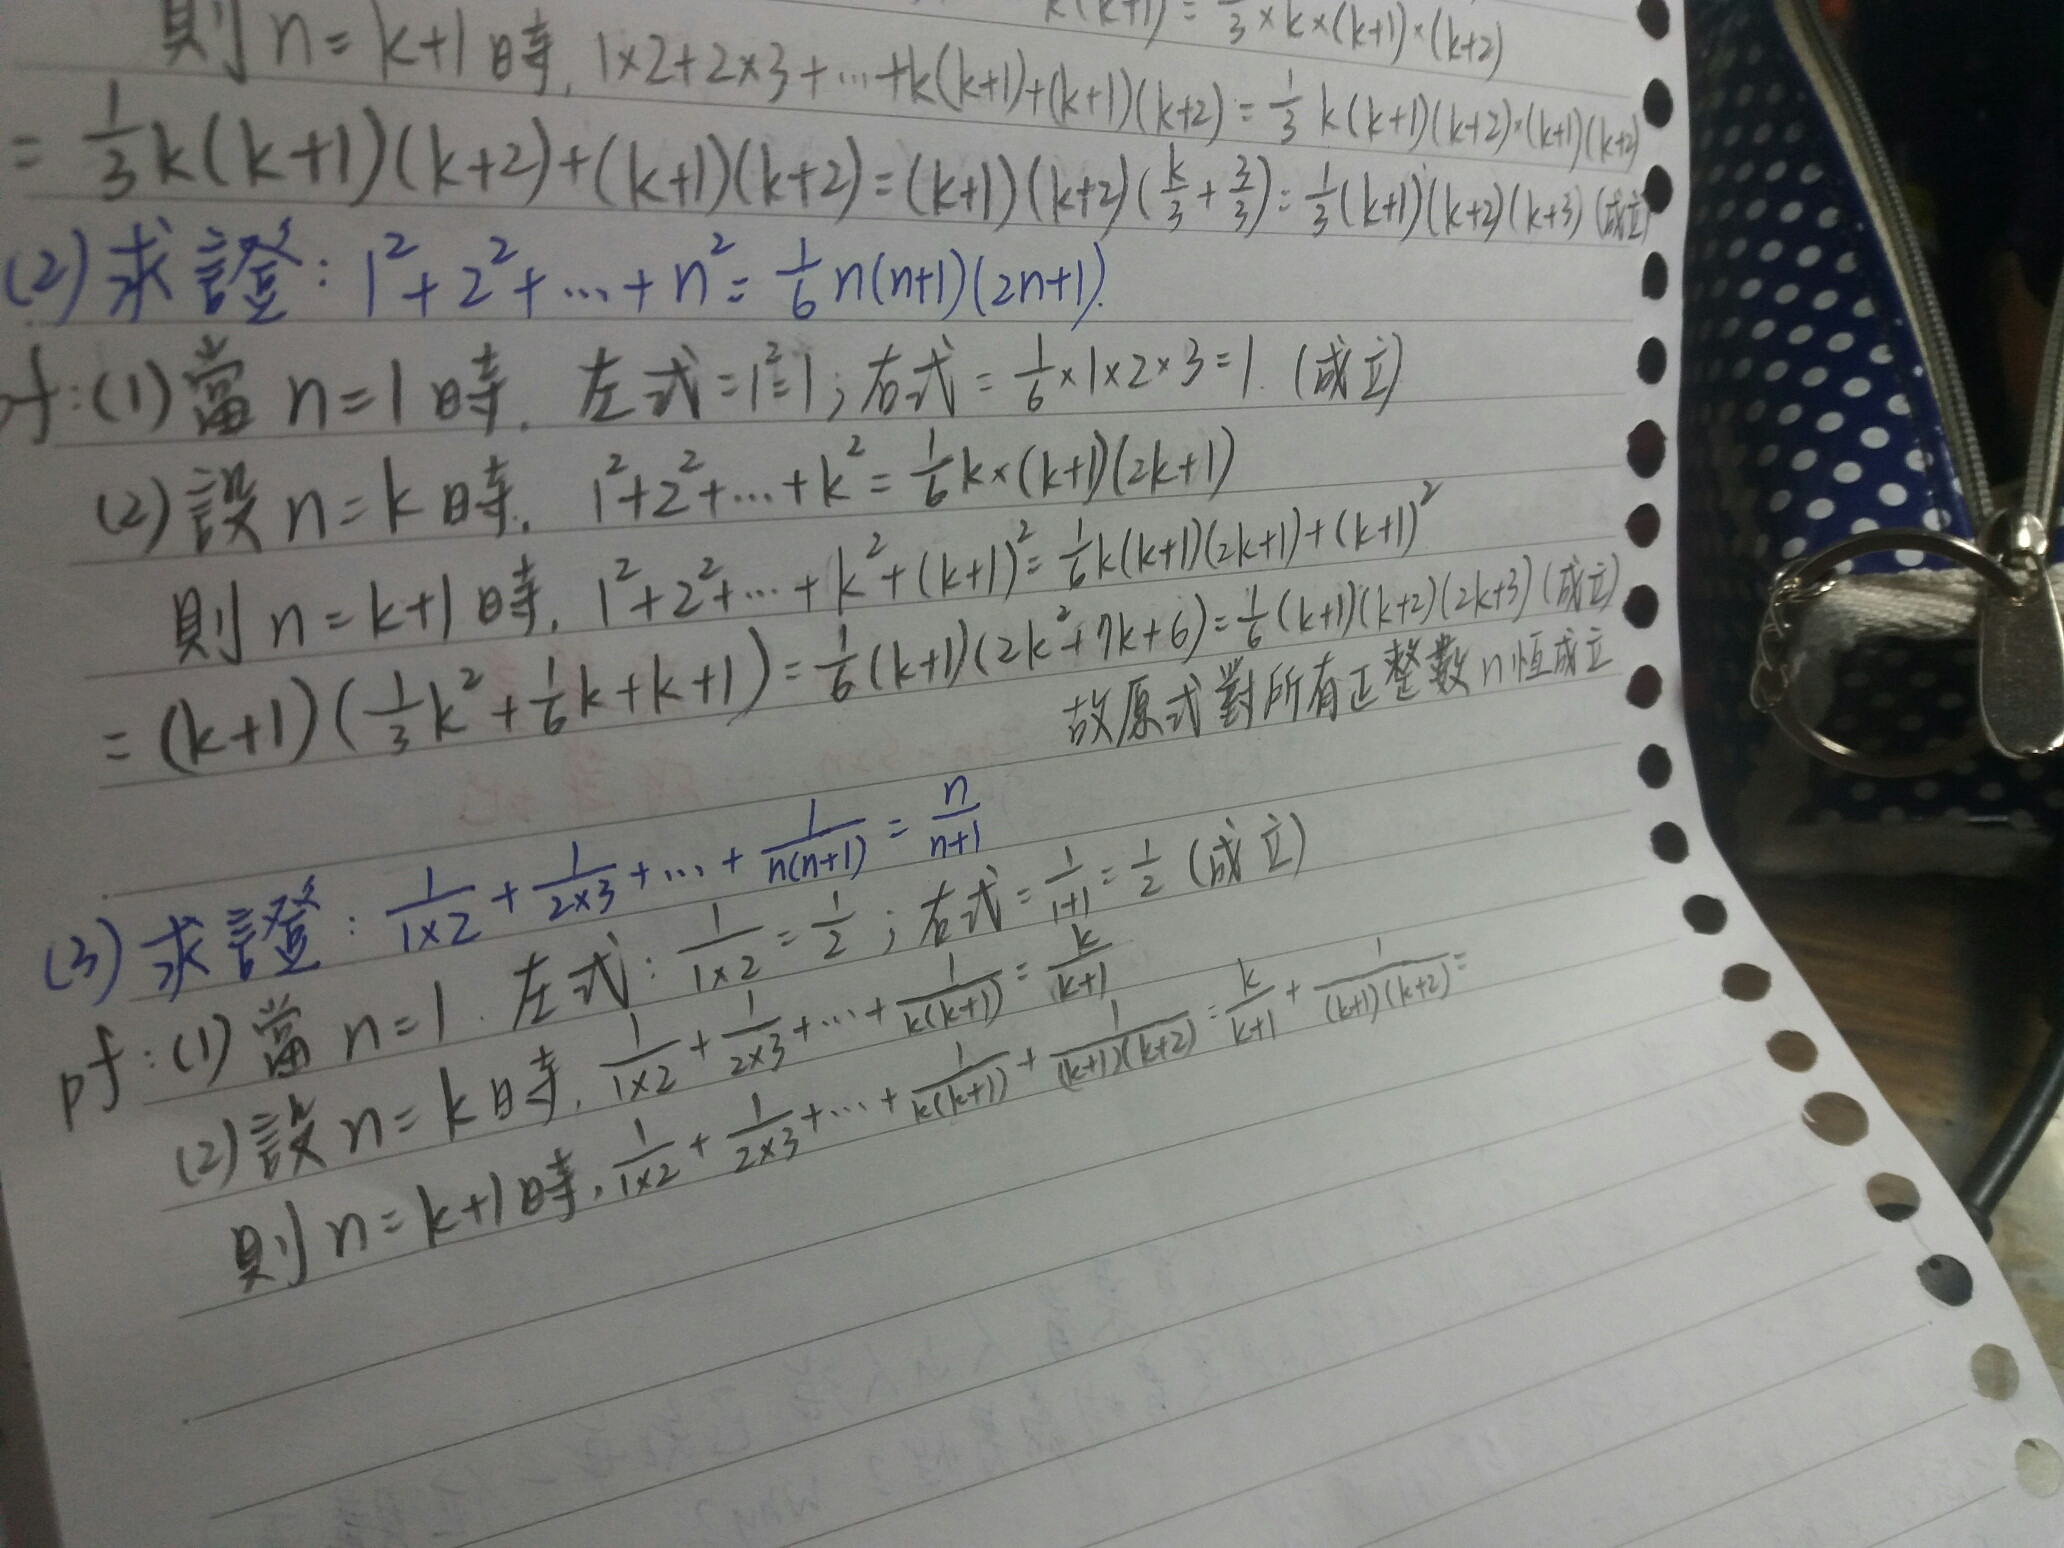 k(k+1) = 1/3 × k × (k+1) × (k+2)
則 n = k+1 時, 1×2+2×3+…+k(k+1)+(k+1)(k+2) = 1/3 k(k+1)(k+2)×(k+1)(k+2)
= 1/3 k(k+1)(k+2)+(k+1)(k+2) = (k+1)(k+2)(k/3 + 3/3) = 1/3 (k+1)(k+2)(k+3) (成立)
(2) 求證: 1²+2²+…+n² = 1/6 n(n+1)(2n+1).
pf: (1) 當 n=1 時, 左式=1²=1; 右式= 1/6 ×1×2×3=1. (成立)
(2) 設 n=k 時, 1²+2²+…+k² = 1/6 k×(k+1)(2k+1)
則 n=k+1 時, 1²+2²+…+k²+(k+1)² = 1/6 k(k+1)(2k+1)+(k+1)²
= (k+1)(1/3 k² + 1/6 k+k+1) = 1/6 (k+1)(2k²+7k+6) = 1/6 (k+1)(k+2)(2k+3) (成立)
故原式對所有正整數n恒成立
(3) 求證: 1/(1×2) + 1/(2×3) +…+ 1/(n(n+1)) = n/(n+1)
pf: (1) 當 n=1. 左式: 1/(1×2) = 1/2 ; 右式= 1/(1+1) = 1/2 (成立)
(2) 設 n=k 時, 1/(1×2) + 1/(2×3) +…+ 1/(k(k+1)) = k/(k+1)
則 n=k+1 時, 1/(1×2) + 1/(2×3) +…+ 1/(k(k+1)) + 1/((k+1)(k+2)) = k/(k+1) + 1/((k+1)(k+2)) =